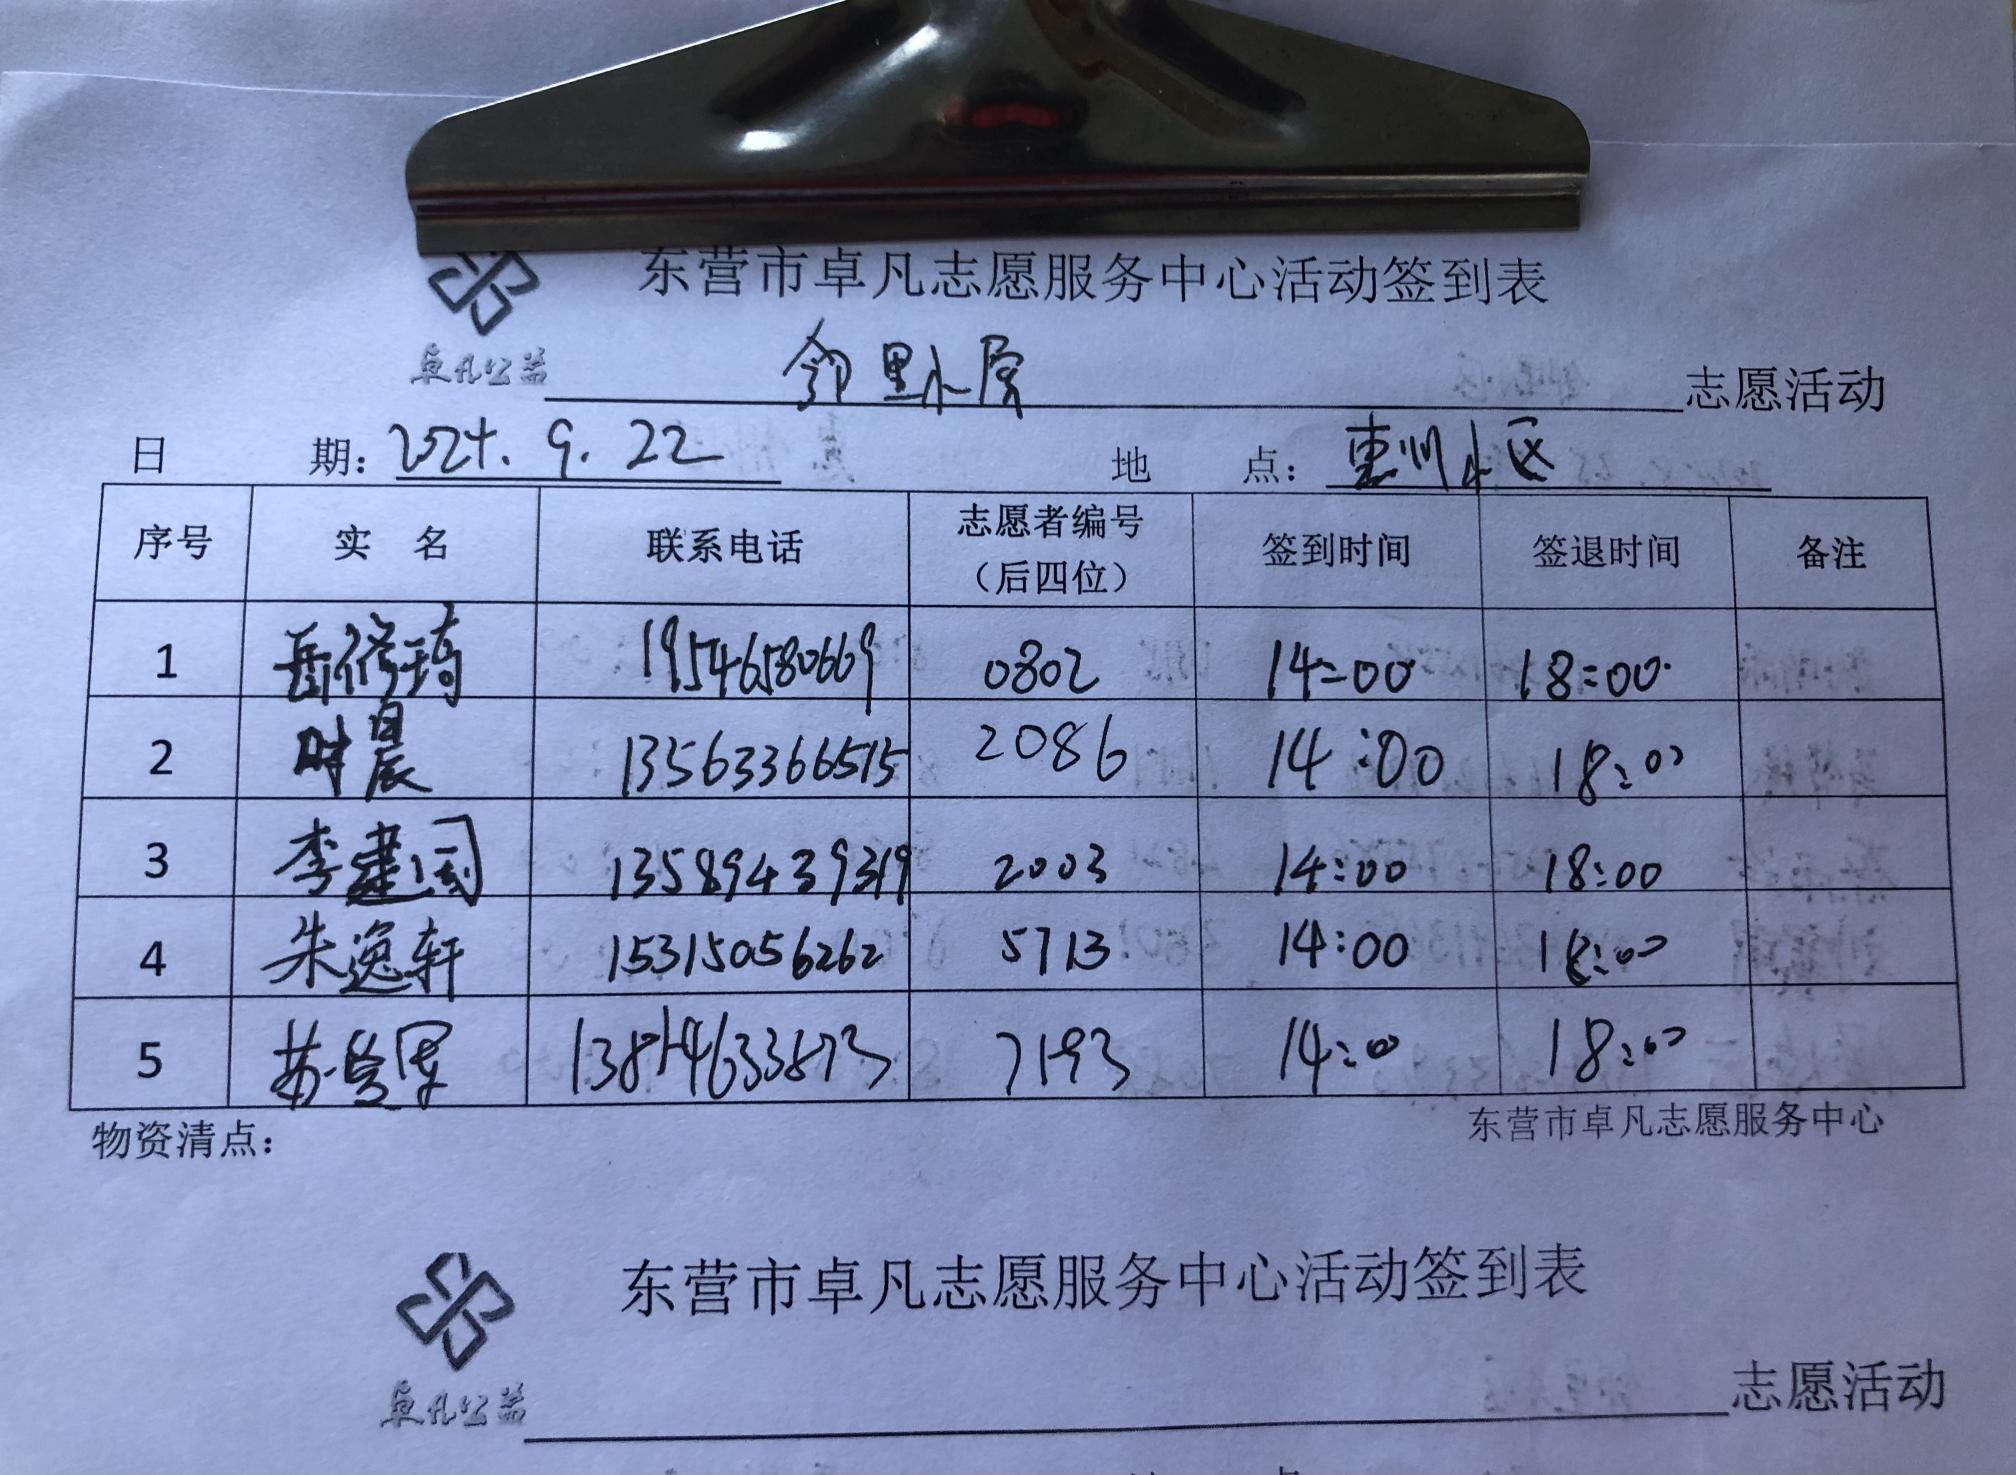 东营市卓凡志愿服务中心活动签到表
卓凡公益 邻里小屋 志愿活动
日 期: 2024.9.22 地 点: 惠州小区
序号 实 名 联系电话 志愿者编号（后四位） 签到时间 签退时间 备注
1 岳修琦 19546580669 0802 14:00 18:00
2 时晨 13563366515 2086 14:00 18:00
3 李建国 13589439319 2003 14:00 18:00
4 朱逸轩 15315056262 5713 14:00 18:00
5 7193 14:00 18:00
物资清点： 东营市卓凡志愿服务中心
东营市卓凡志愿服务中心活动签到表
卓凡公益 志愿活动